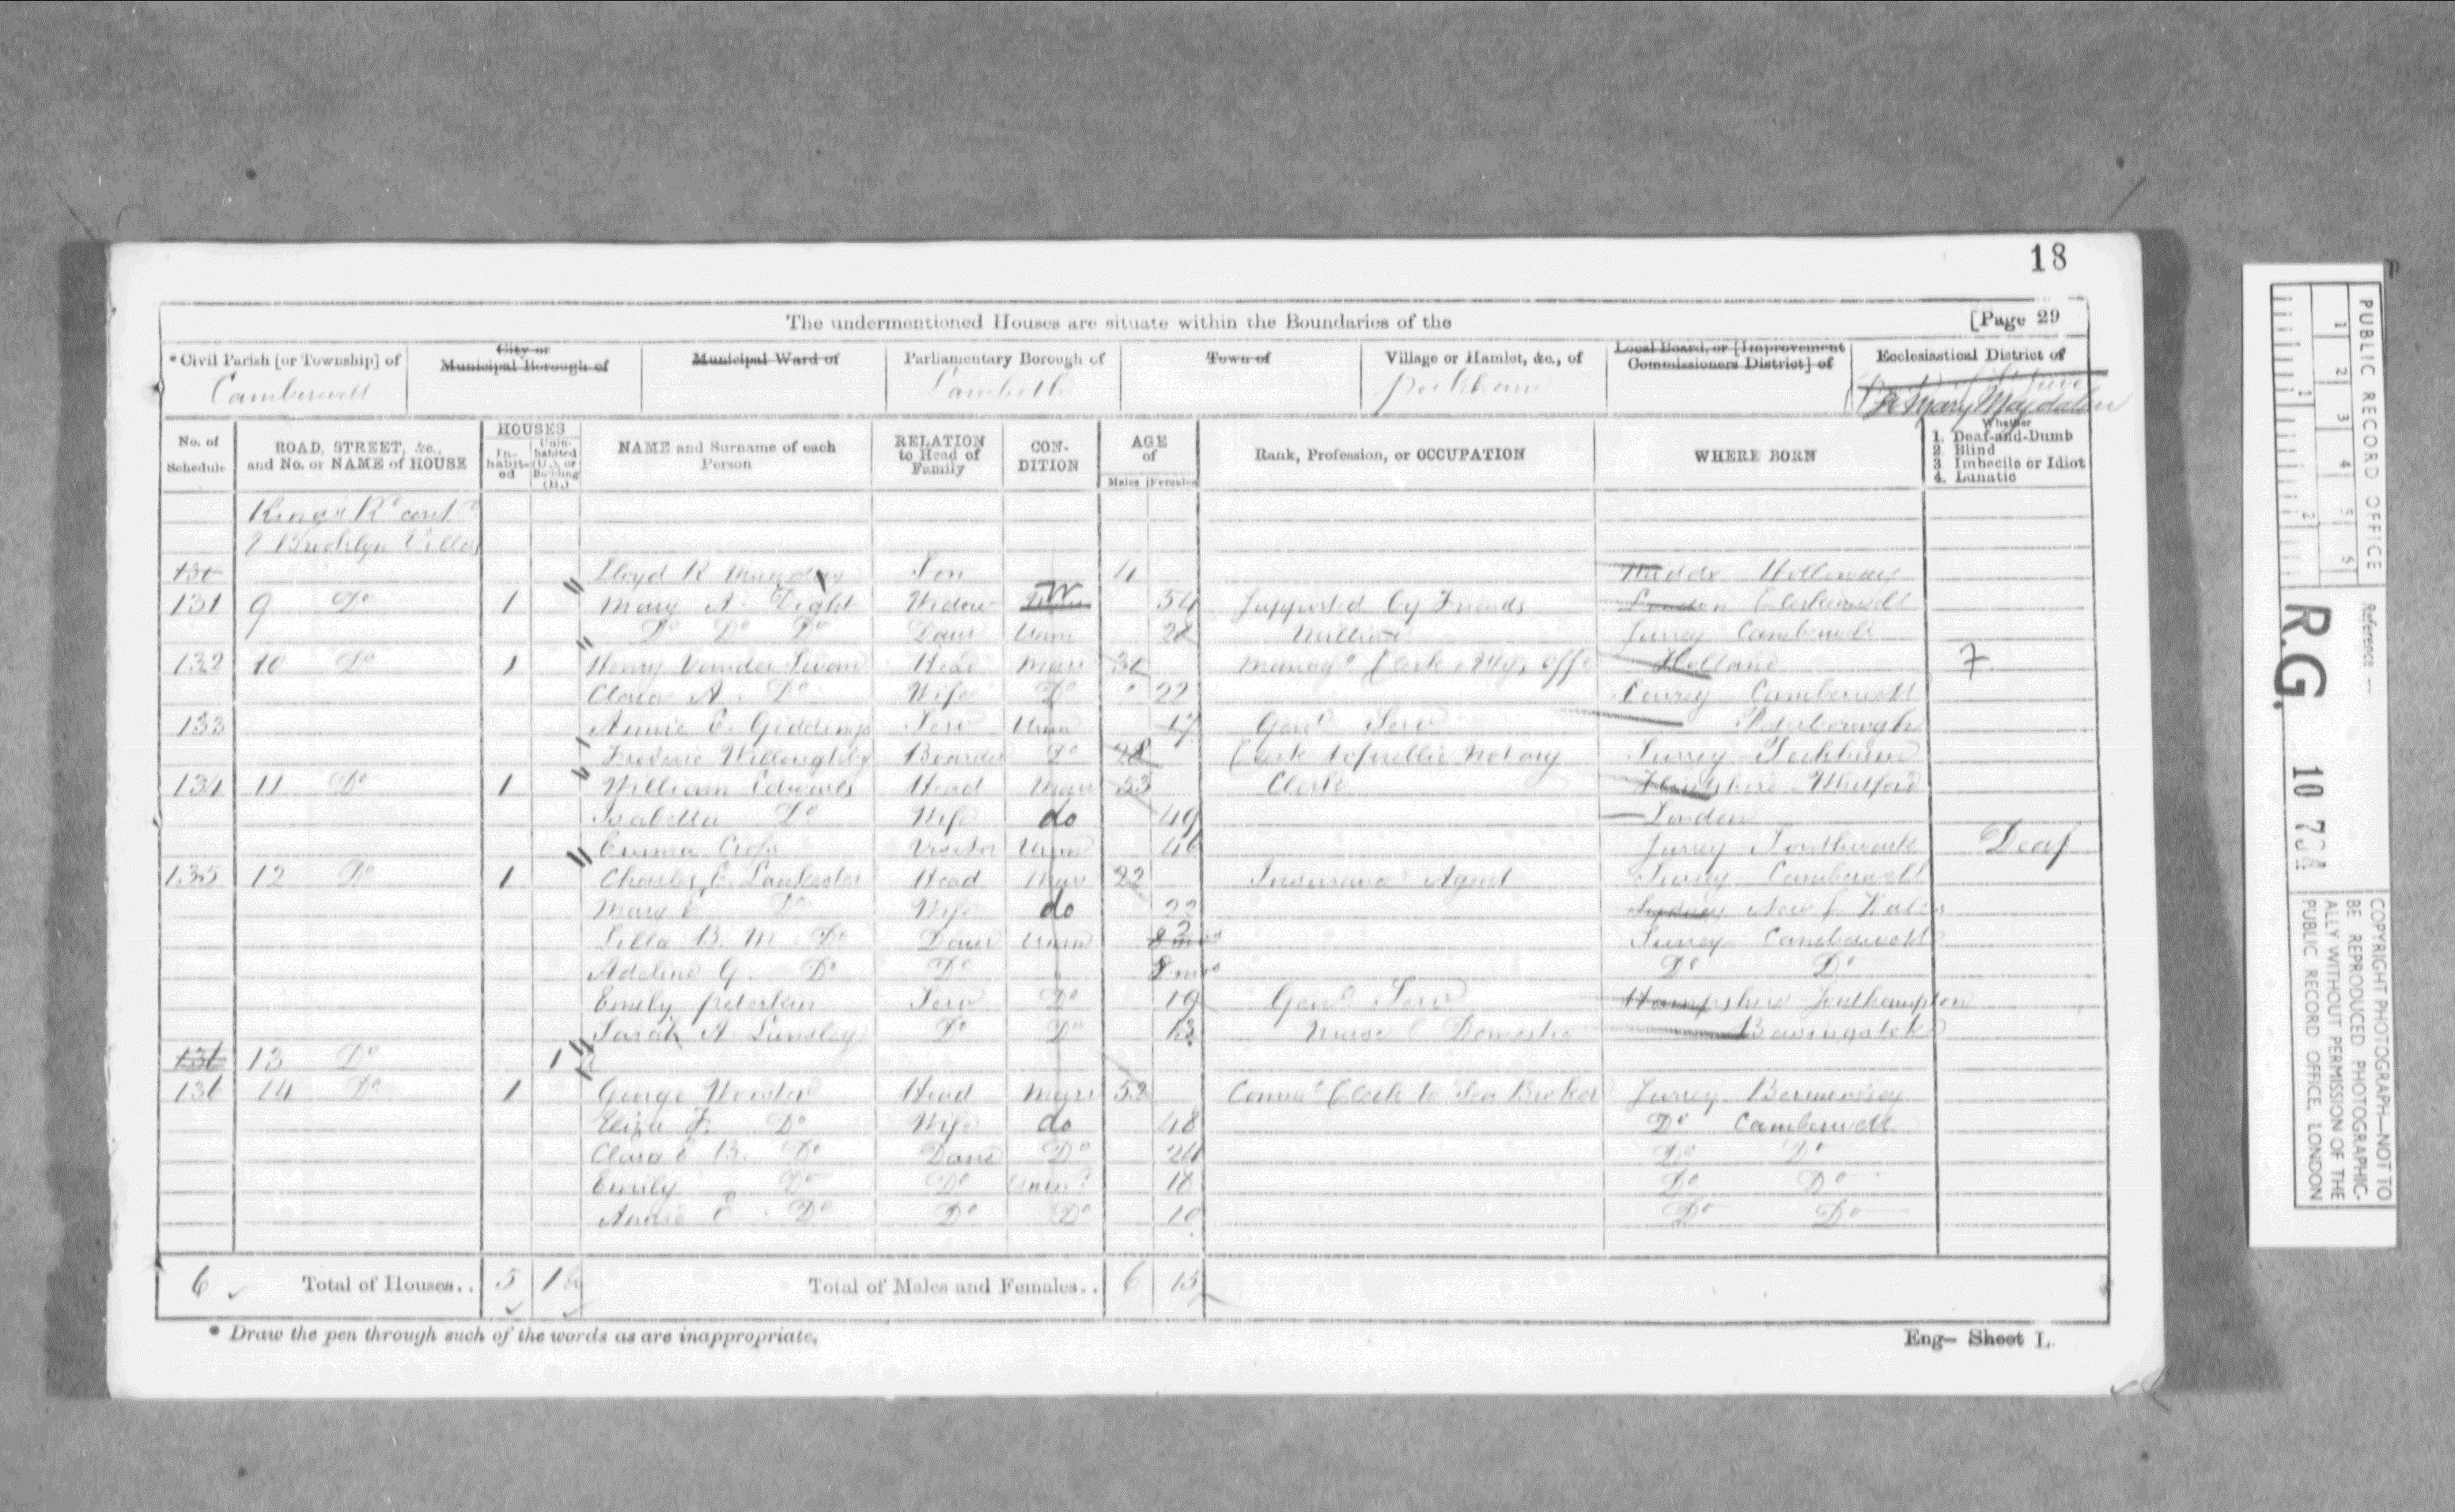 18
The undermentioned Houses are situate within the Boundaries of the [Page 29
*Civil Parish [or Township] of City or Municipal Borough of Municipal Ward of Parliamentary Borough of Town of Village or Hamlet, &c., of Local Board, or [Improvement Commissioners District] of Ecclesiastical District of
Camberwell Lambeth Peckham St Mary Magdalen
No. of Schedule ROAD, STREET, &c., and No. or NAME of HOUSE HOUSES In-habit-ed Unin-habited (U.), or Building (B.) NAME and Surname of each Person RELATION to Head of Family CON-DITION AGE of Males Females Rank, Profession, or OCCUPATION WHERE BORN Whether 1. Deaf-and-Dumb 2. Blind 3. Imbecile or Idiot 4. Lunatic
Kings Rd contd
Brooklyn Villas
Lloyd R Son 4 Holloway
131 9 Do 1 Mary A Dight Widow W 54 Supported by Friends London Clerkenwell
Do Do Do Daur Unm Milliner Surrey Camberwell
132 10 Do 1 Henry Vander Swan Head Marr Clerk Holland F
Clara A. Do Wife Do 22 Surrey Camberwell
133 Annie E. Giddings Serv Unm 17 Genl Serv
Frederic Willoughby Boarder Do 28 Clerk to Public Notary Surrey Peckham
134 11 Do 1 William Edwards Head Marr 53 Clerk
Isabella Do Wife do 49 London
Emma Visitor Unm 46 Surrey Southwark Deaf
135 12 Do 1 Charles E. Lankester Head Marr 22 Insurance Agent Surrey Camberwell
Mary E Do Wife do 22 Sydney New S. Wales
Lilla B. M. Do Daur Unm 2 Surrey Camberwell
Adeline G. Do Do 8 mos Do Do
Emily Serv Do 19 Genl Serv Hampshire Southampton
Sarah A Do Do 13 Nurse Domestic Basingstoke
136 13 Do 1
136 14 Do 1 George Head Marr 52 Clerk to Broker Surrey Bermondsey
Eliza F. Do Wife do 48 Do Camberwell
Clara E B. Do Daur Do 24 Do Do
Emily Do Do Unm 18 Do Do
Annie E Do Do Do 10 Do Do
6 Total of Houses.. 5 1 Total of Males and Females.. 6 15
* Draw the pen through such of the words as are inappropriate.
Eng- Sheet L.
PUBLIC RECORD OFFICE
1 2 3 4 5
1 2
Reference :-
R.G. 10 732
COPYRIGHT PHOTOGRAPH—NOT TO
BE REPRODUCED PHOTOGRAPHIC-
ALLY WITHOUT PERMISSION OF THE
PUBLIC RECORD OFFICE, LONDON